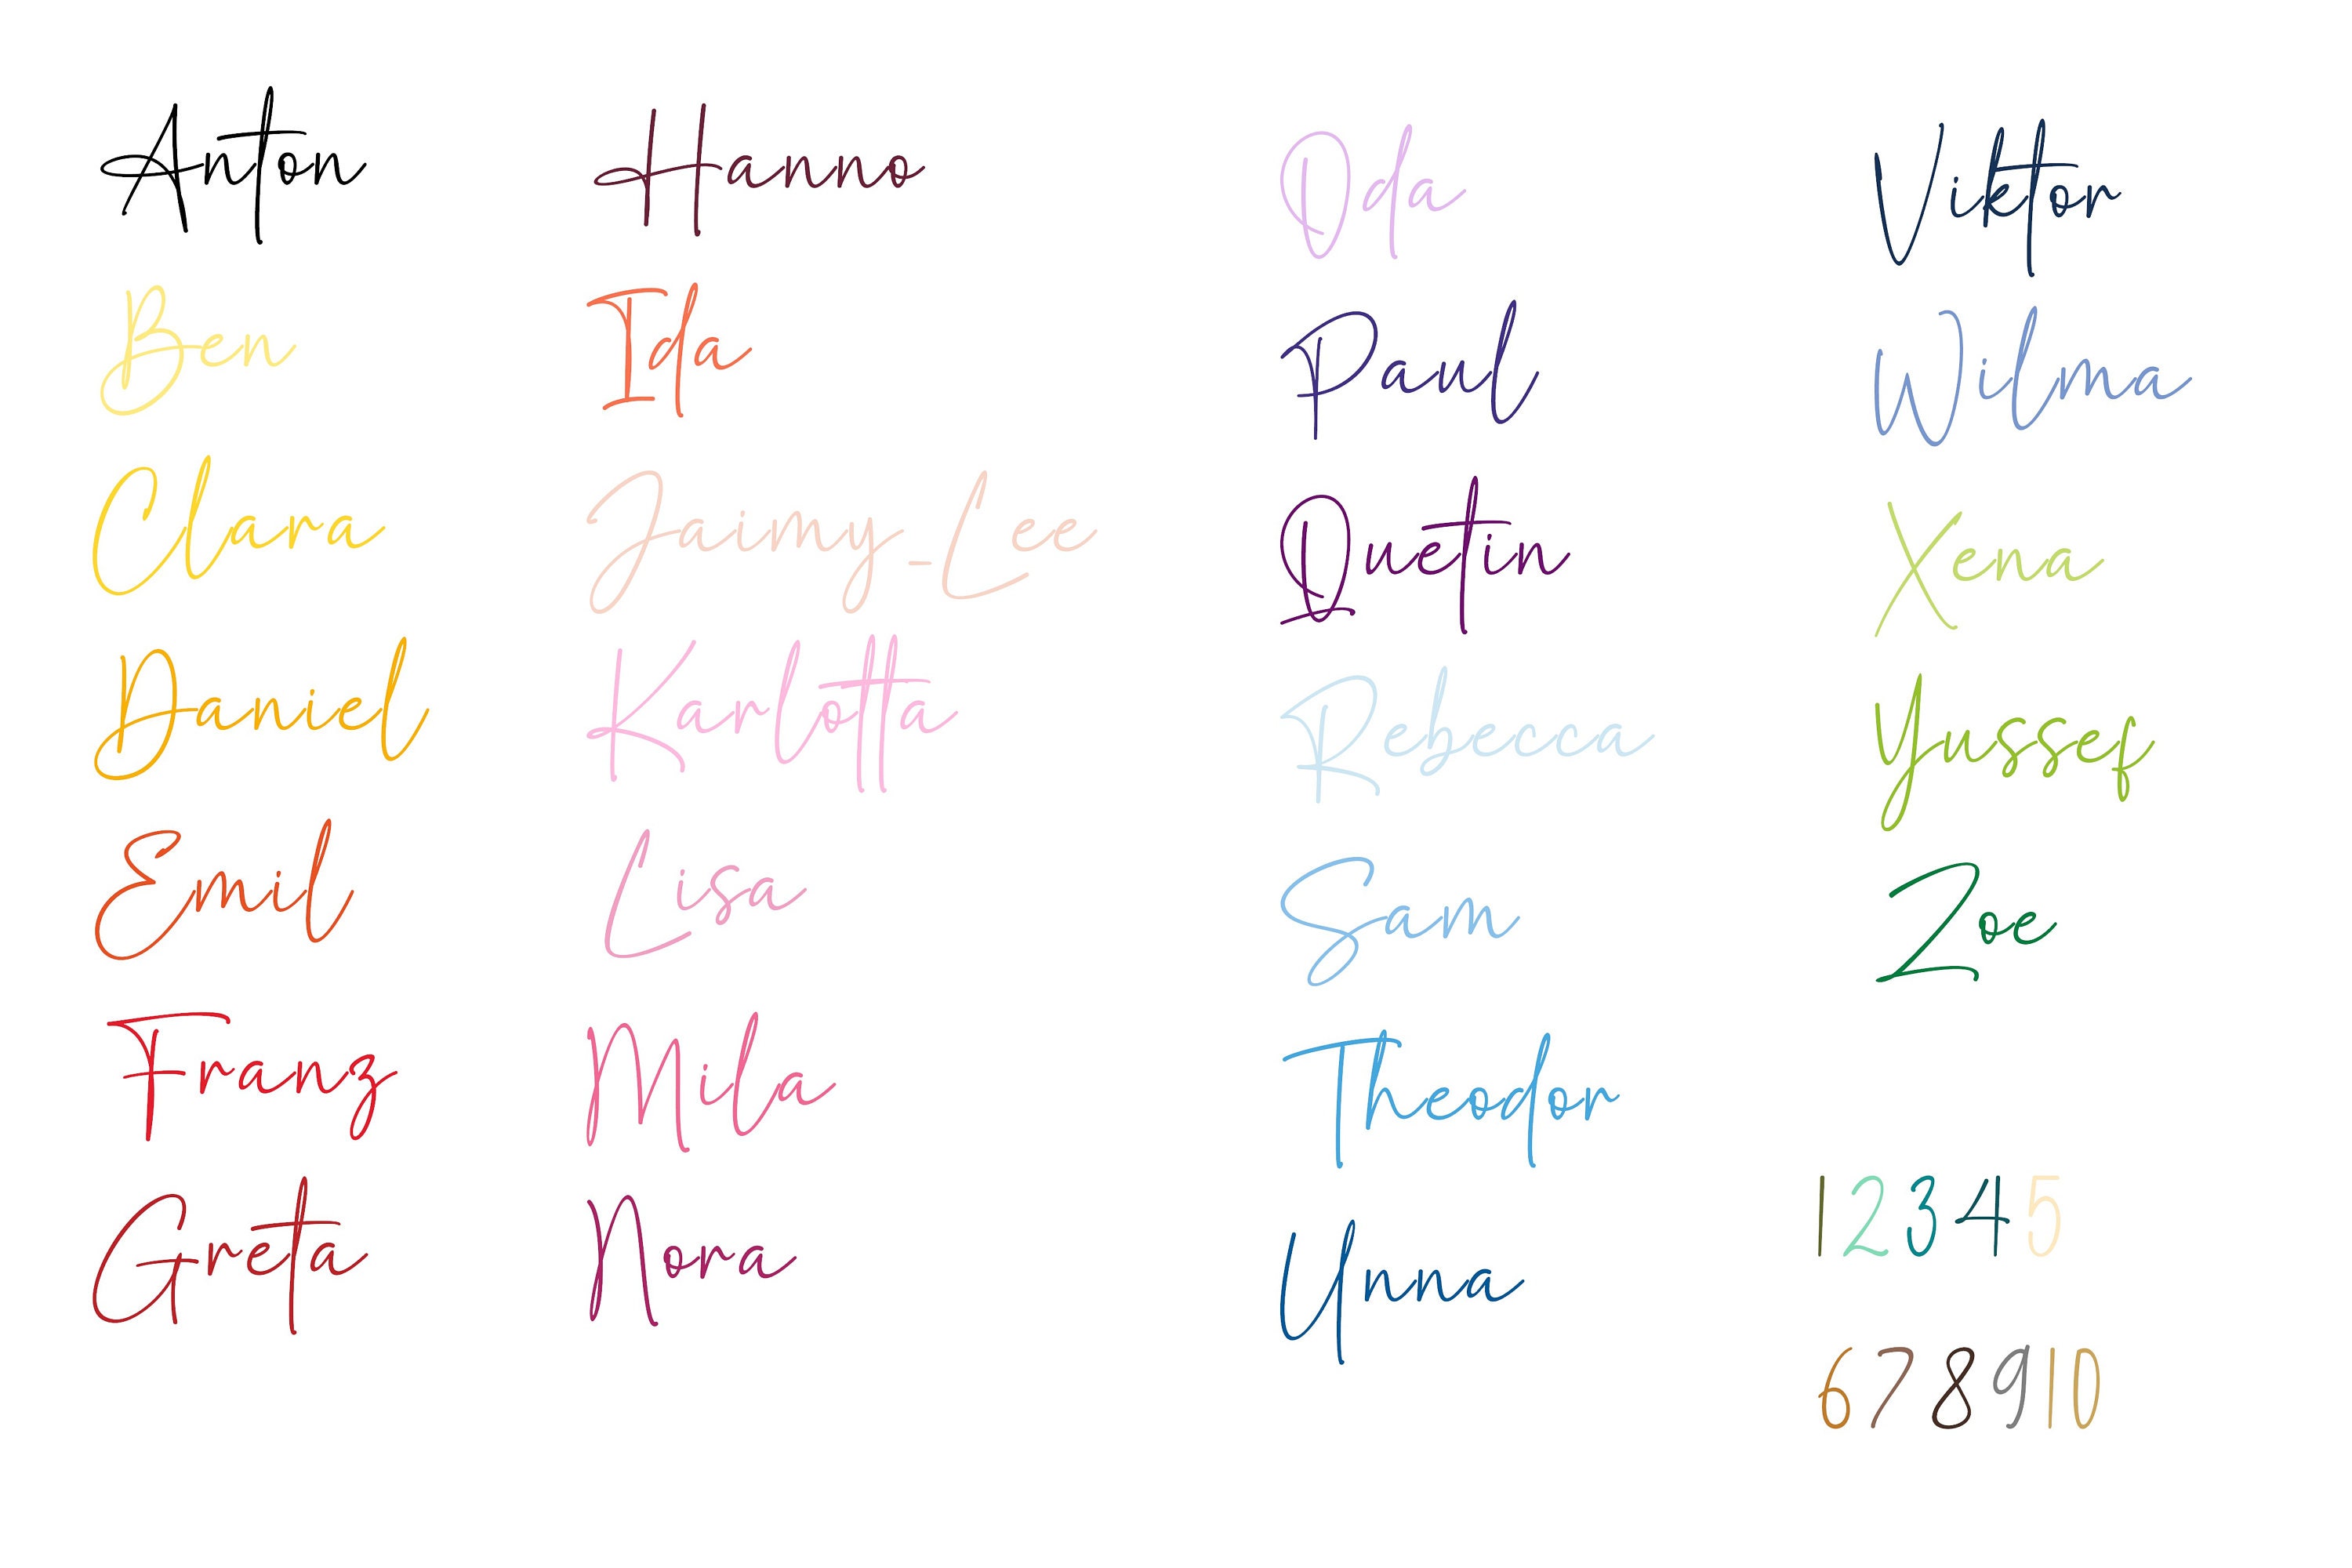 Anton
Ben
Clara
Daniel
Emil
Franz
Greta
Hanno
Ida
Jaimy-Lee
Karlotta
Lisa
Mila
Nora
Oda
Paul
Quetin
Rebecca
Sam
Theodor
Unna
Viktor
Wilma
Xena
Yussef
Zoe
1 2 3 4 5
6 7 8 9 10